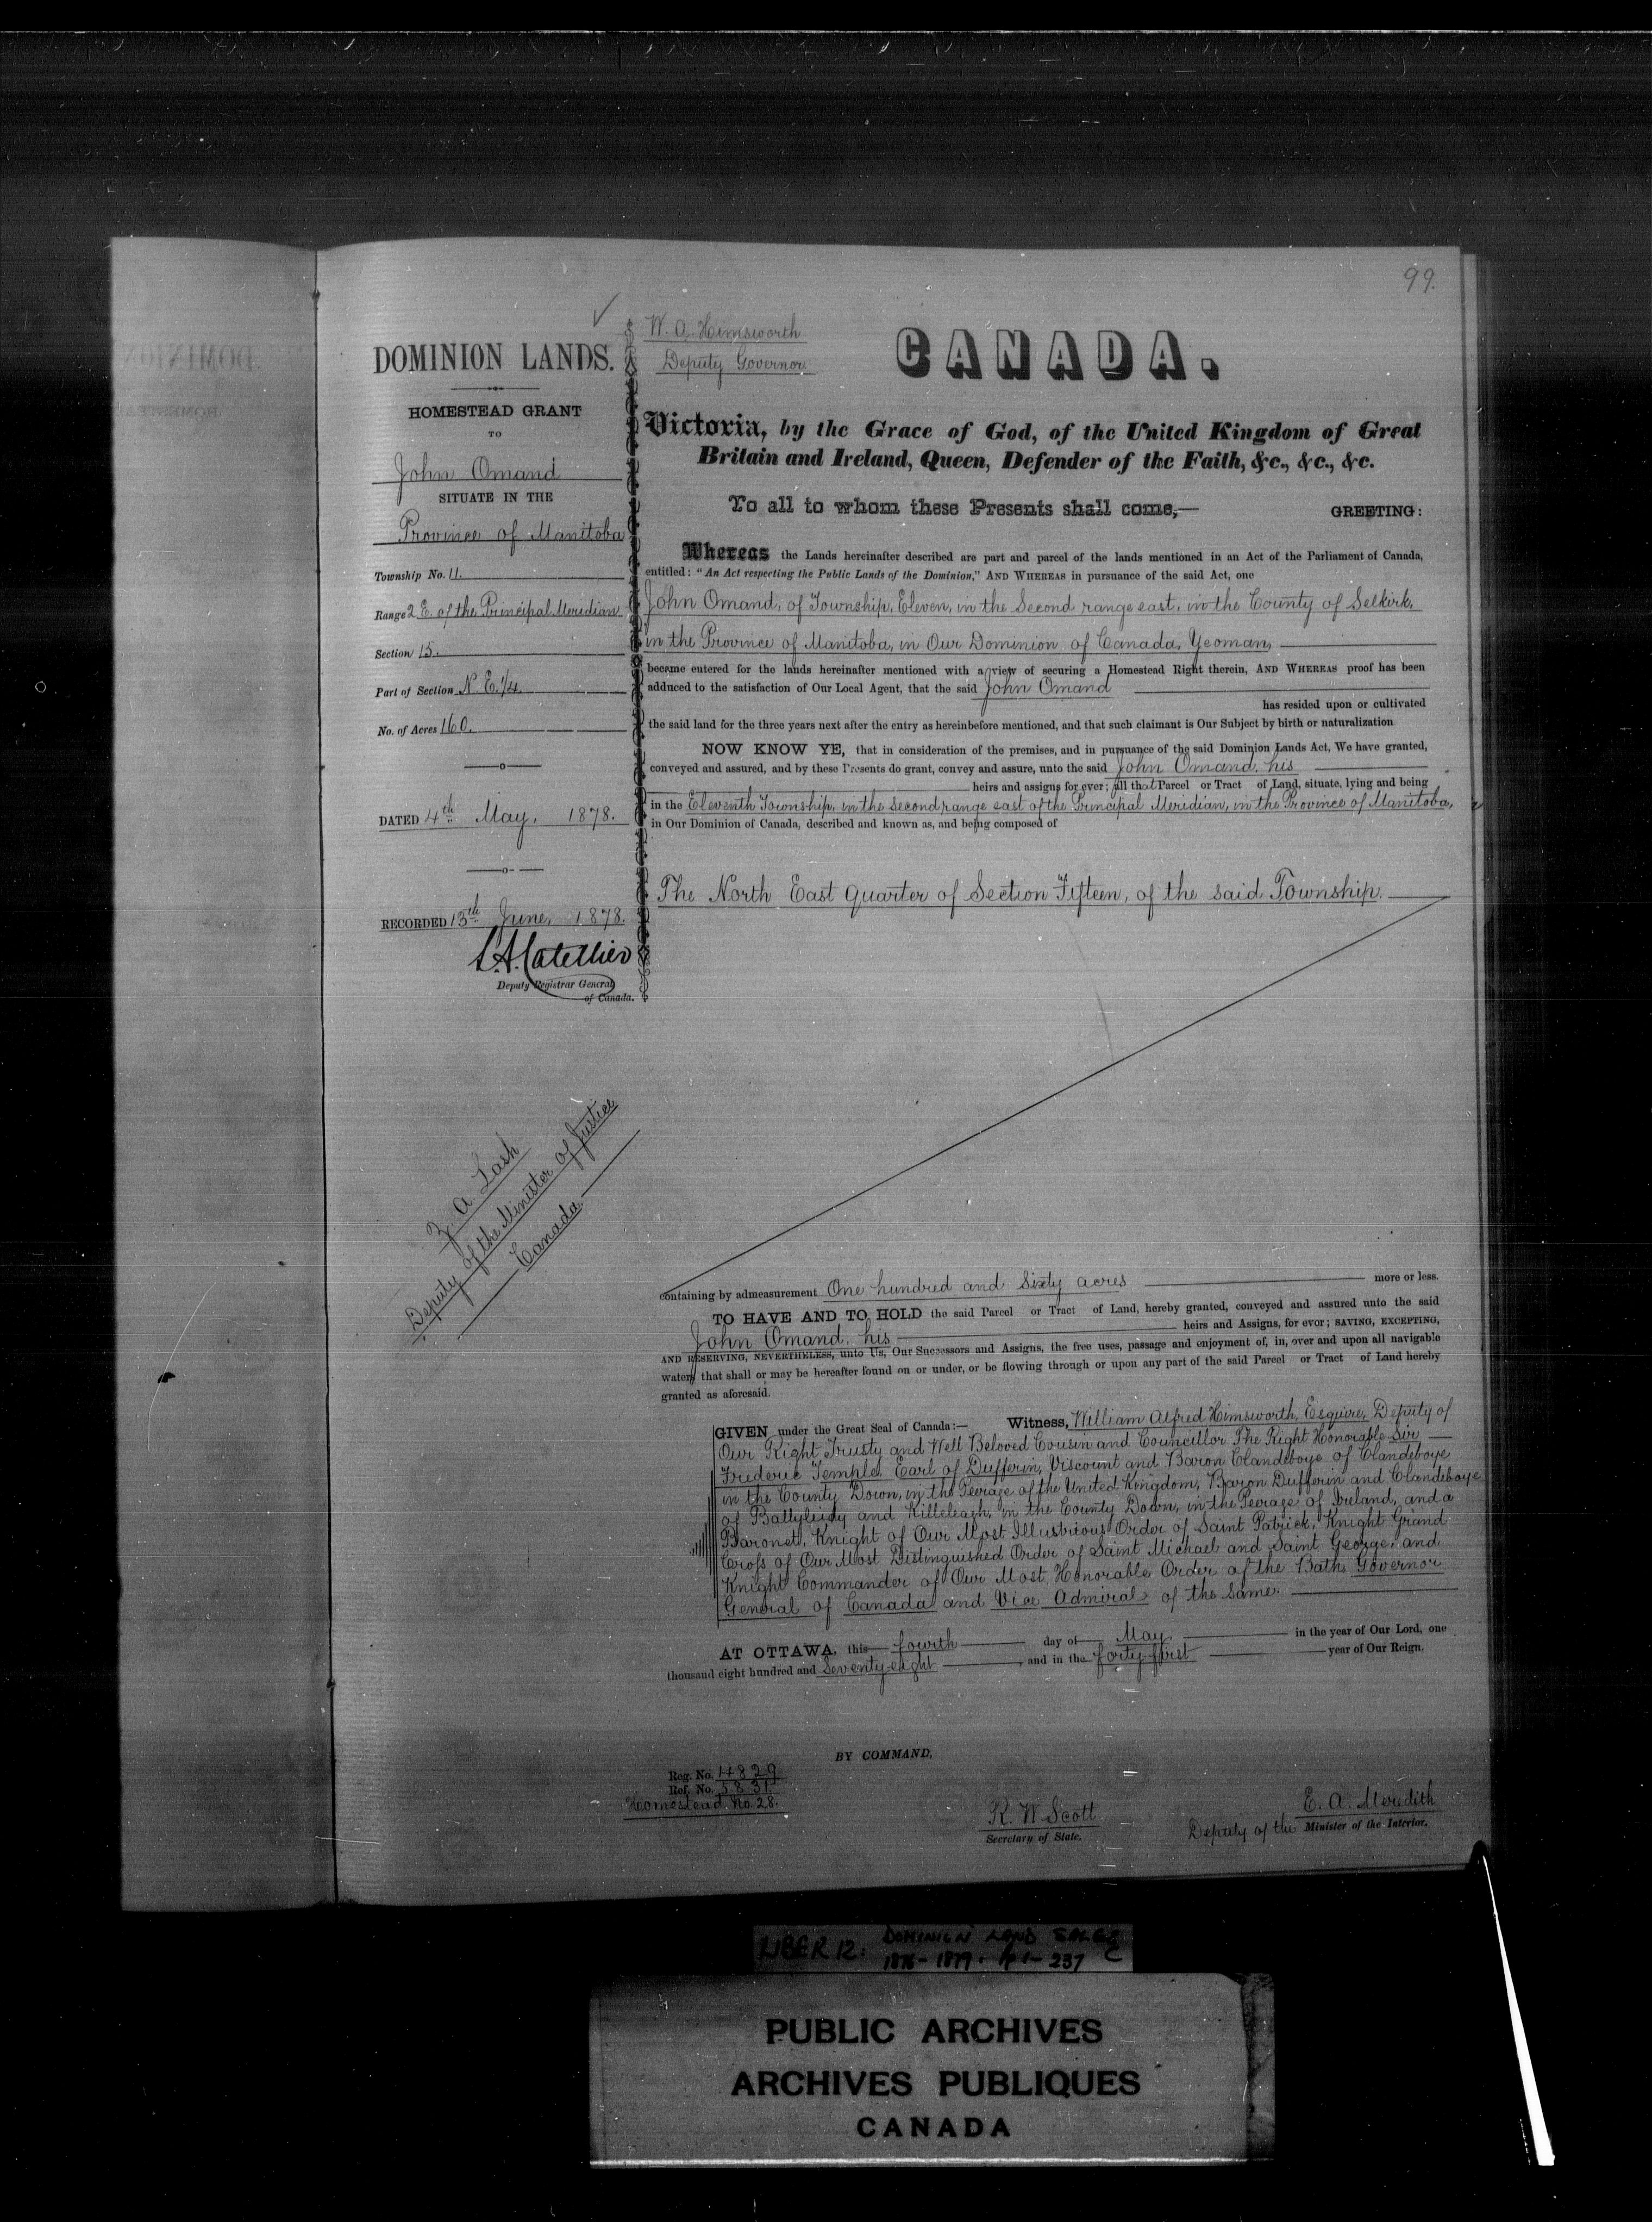 99.
DOMINION LANDS.
HOMESTEAD GRANT
TO
John Omand
SITUATE IN THE
Province of Manitoba
Township No. 11.
Range 2 E. of the Principal Meridian.
Section 15.
Part of Section N. E. 1/4.
No. of Acres 160.
DATED 4th May, 1878.
RECORDED 15th June, 1878.
L.A. Catellier
Deputy Registrar General
of Canada.
Z. A. Lash
Deputy of the Minister of Justice
Canada
W. A. Himsworth
Deputy Governor
CANADA.
Victoria, by the Grace of God, of the United Kingdom of Great
Britain and Ireland, Queen, Defender of the Faith, &c., &c., &c.
To all to whom these Presents shall come,— GREETING:
Whereas the Lands hereinafter described are part and parcel of the lands mentioned in an Act of the Parliament of Canada,
entitled: "An Act respecting the Public Lands of the Dominion," AND WHEREAS in pursuance of the said Act, one
John Omand, of Township, Eleven, in the Second range east, in the County of Selkirk,
in the Province of Manitoba, in Our Dominion of Canada, Yeoman,
became entered for the lands hereinafter mentioned with a view of securing a Homestead Right therein, AND WHEREAS proof has been
adduced to the satisfaction of Our Local Agent, that the said John Omand
has resided upon or cultivated
the said land for the three years next after the entry as hereinbefore mentioned, and that such claimant is Our Subject by birth or naturalization
NOW KNOW YE, that in consideration of the premises, and in pursuance of the said Dominion Lands Act, We have granted,
conveyed and assured, and by these Presents do grant, convey and assure, unto the said John Omand, his
heirs and assigns for ever; all that Parcel or Tract of Land, situate, lying and being
in the Eleventh Township, in the second range east of the Principal Meridian, in the Province of Manitoba,
in Our Dominion of Canada, described and known as, and being composed of
The North East quarter of Section Fifteen, of the said Township.
containing by admeasurement One hundred and Sixty acres more or less.
TO HAVE AND TO HOLD the said Parcel or Tract of Land, hereby granted, conveyed and assured unto the said
John Omand, his heirs and Assigns, for ever; SAVING, EXCEPTING,
AND RESERVING, NEVERTHELESS, unto Us, Our Successors and Assigns, the free uses, passage and enjoyment of, in, over and upon all navigable
waters that shall or may be hereafter found on or under, or be flowing through or upon any part of the said Parcel or Tract of Land hereby
granted as aforesaid.
GIVEN under the Great Seal of Canada:— Witness, William Alfred Himsworth, Esquire, Deputy of
Our Right Trusty and Well Beloved Cousin and Councillor The Right Honorable Sir
Frederic Temple, Earl of Dufferin, Viscount and Baron Clandeboye of Clandeboye
in the County Down, in the Peerage of the United Kingdom, Baron Dufferin and Clandeboye
of Ballyleidy and Killeleagh, in the County Down, in the Peerage of Ireland, and a
Baronet, Knight of Our Most Illustrious Order of Saint Patrick, Knight Grand
Cross of Our Most Distinguished Order of Saint Michael and Saint George, and
Knight Commander of Our Most Honorable Order of the Bath, Governor
General of Canada and Vice Admiral of the same.
AT OTTAWA, this fourth day of May in the year of Our Lord, one
thousand eight hundred and Seventy-eight, and in the forty-first year of Our Reign.
BY COMMAND,
Reg. No. 4829
Ref. No. 5831.
Homestead. No. 28.
R. W. Scott
Secretary of State.
E. A. Meredith
Deputy of the Minister of the Interior.
LIBER 12: DOMINION LAND SALES
1876-1879. pp 1-237
PUBLIC ARCHIVES
ARCHIVES PUBLIQUES
CANADA